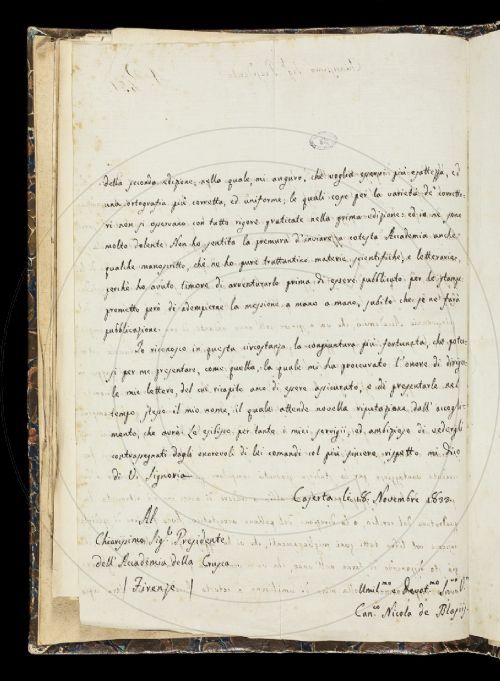 della seconda edizione, nella quale, mi auguro, che voglia esservi più esattezza, ed
una ortografia più corretta, ed uniforme, le quali cose per la varietà de' corretto-
ri non si osservano con tutto rigore praticate nella prima edizione: ed io ne sono
molto dolente. Non ho sentita la premura d'inviare a cotesta Accademia anche
qualche manoscritto, che ne ho pure trattantino materie scientifiche, e letterarie,
perchè ho avuto timore di avventurarlo prima di essere pubblicato per le stampe
prometto però di adempierne la messione a mano a mano, subito che se ne farà
pubblicazione.
Io riconosco in questa circostanza la congiuntura più fortunata, che potes-
si per me presentare, come quella, la quale mi ha procurato l'onore di dirige-
le mie lettere, del cui ricapito amo di essere assicurato, e di presentarle nel
tempo stesso il mio nome, il quale attende novella riputazione dall' accogli-
mento, che avrà. Le esibisco per tanto i miei servigii, ed ambizioso di vedergli
contrassegnati dagli onorevoli di lei comandi col più sincero rispetto mi dico
di V. Signoria
Caserta le 18. Novembre 1833.
Al
Chiarissimo Sig.e Presidente
dell' Accademia della Crusca
( Firenze )
Umil.mo e Devot.mo
Can.co Nicola de Blasiis